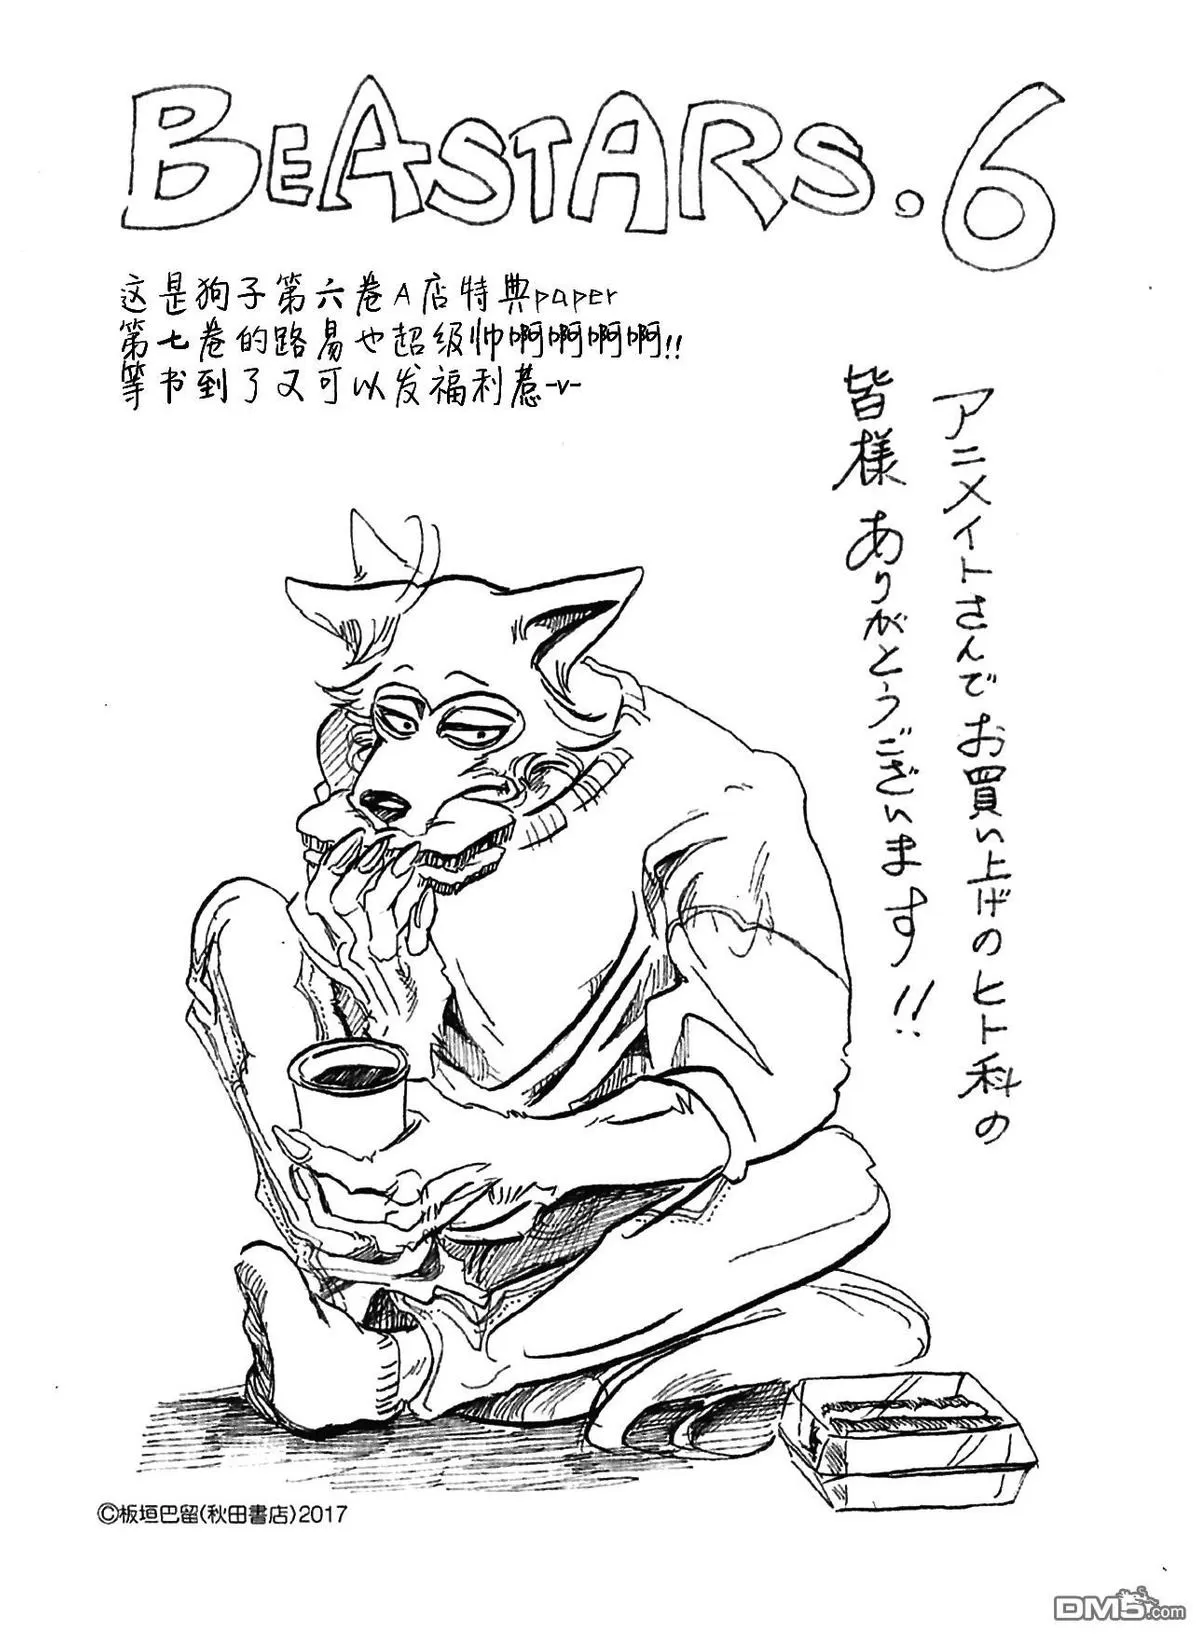 BEASTARS.6
这是狗子第六卷A店特典paper
第七卷的路易也超级帅啊啊啊啊!!
等书到了又可以发福利惹-v-
アニメイトさんでお買い上げのヒト科の
皆様ありがとうございます!!
©板垣巴留(秋田書店)2017
DM5.com